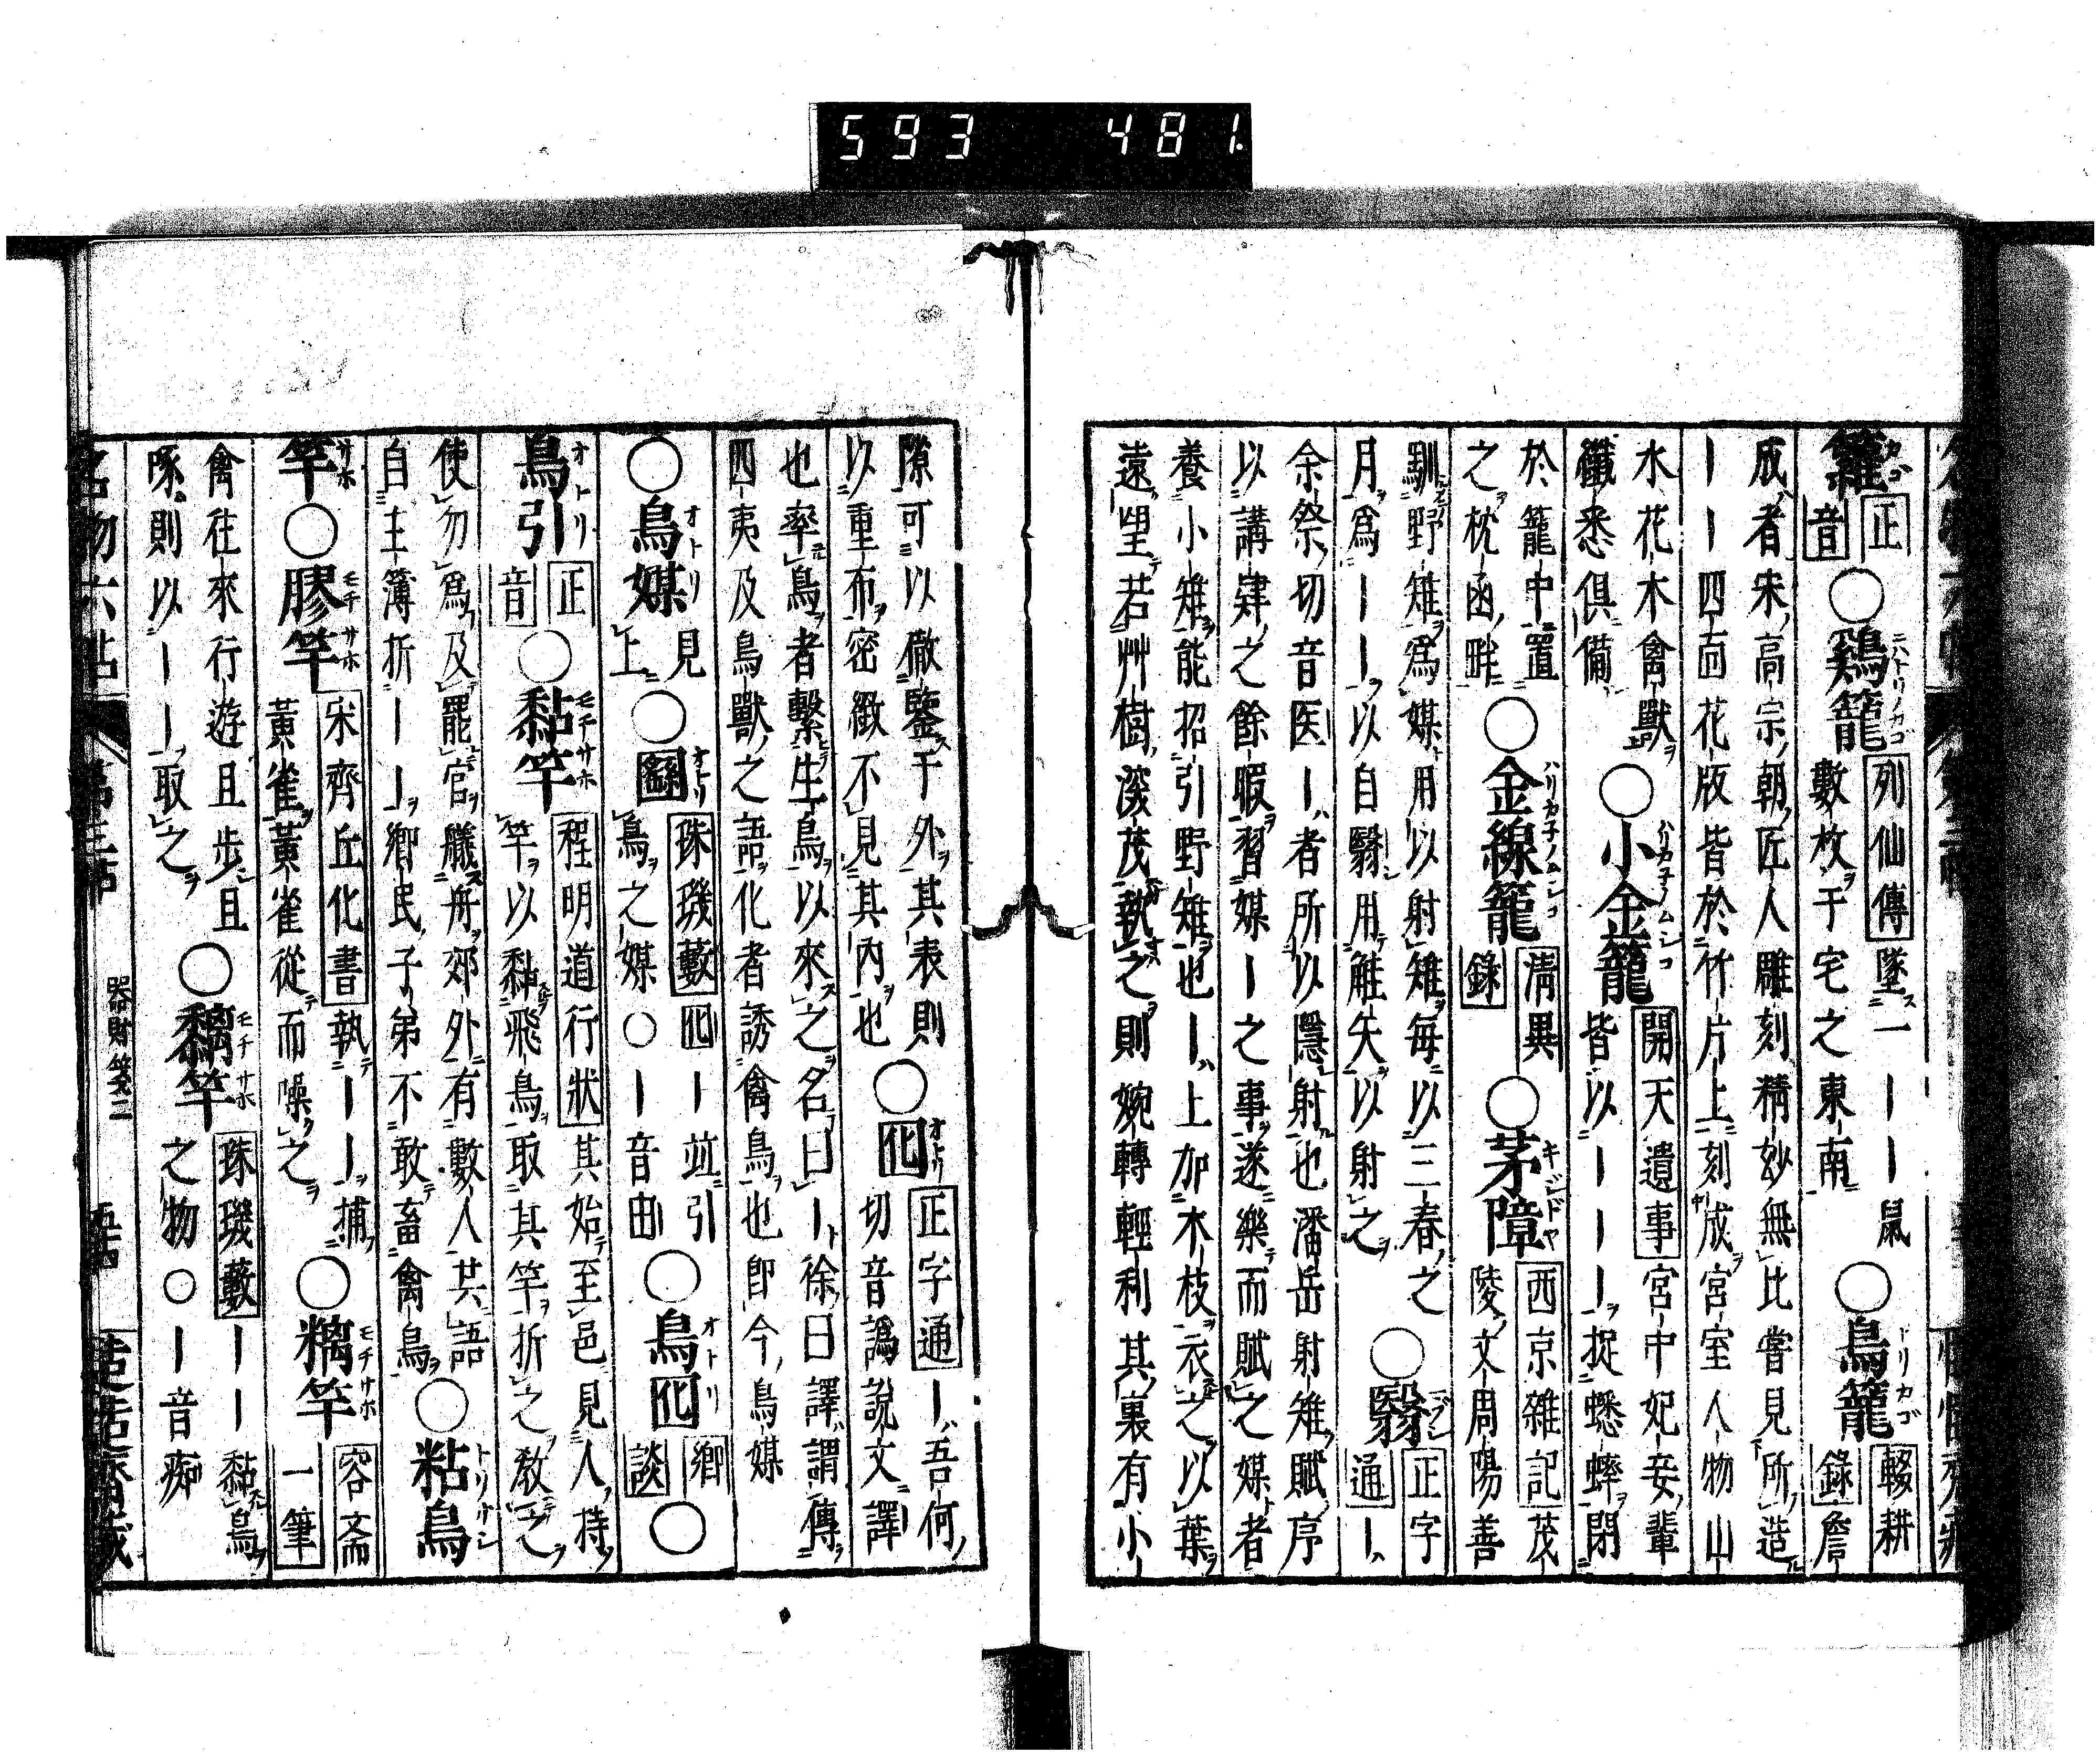 籮 正音 ○鷄籠 列仙傳 墜一ーー鼠
數枚于宅之東南 ○鳥籠 輟耕錄 詹
成者宋高宗朝匠人雕刻精妙無比嘗見所造
ーー四面花版皆於竹片上刻成宮室人物山
水花木禽獸
纖悉俱備 ○小金籠 開天遺事 宮中妃妾輩
皆以ーーー捉蟋蟀閉
於籠中置
之枕函畔 ○金線籠 清異錄 ○茅障 西京雜記 茂
陵文周陽善
馴野雉爲媒用以射雉每以三春之
月爲ーー以自翳用觟矢以射之 ○翳 正字通 ー
余祭切音医ー者所以隱射也潘岳射雉賦序
以講肄之餘暇習媒ー之事遂樂而賦之媒者
養小雉能招引野雉也ー上加木枝衣之以葉
遠望若艸樹深茂執之則婉轉輕利其裏有小
隙可以徹鑒于外其表則
以重布密緻不見其内也 ○囮 正字通 ー吾何
切音譌說文譯
也率鳥者繫生鳥以來之名曰ー徐曰譯謂傳
四夷及鳥獸之語化者誘禽鳥也卽今鳥媒
○鳥媒 見上 ○ 珠璣藪 囮ー竝引
鳥之媒○ー音由 ○鳥囮 鄉談 ○
鳥引 正音 ○黏竿 程明道行狀 其始至邑見人持
竿以黏飛鳥取其竿折之教之
使勿爲及罷官艤舟郊外有數人共語
自主簿折ーー鄉民子弟不敢畜禽鳥 ○粘鳥
竿 ○膠竿 宋齊丘化書 執ーー捕
黃雀黃雀從而噪之 ○竿 容斎一筆
禽往來行遊且步且
啄則以ーー取之 ○黐竿 珠璣藪 ーー黏鳥
之物○ー音痴
名物六帖 第三帖 器財箋二
593 481